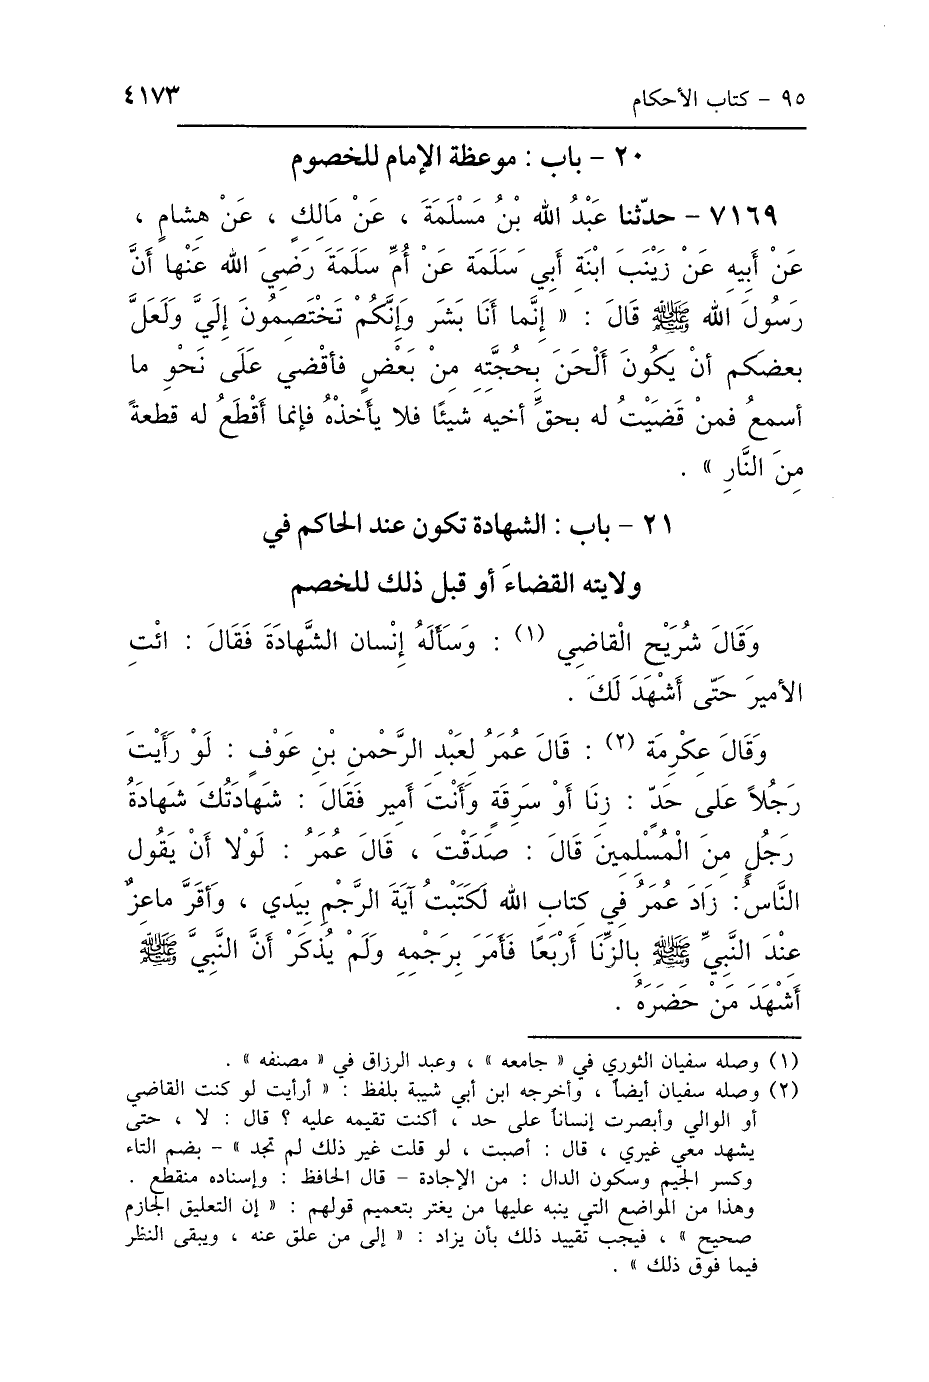 ٩٥ - كتاب الأحكام ٤١٧٣
٢٠ - باب : موعظة الإمام للخصوم
٧١٦٩ - حدّثنا عَبْدُ الله بْنُ مَسْلَمَةَ ، عَنْ مَالِكٍ ، عَنْ هِشامٍ ،
عَنْ أَبيهِ عَنْ زَيْنَبَ ابْنَةِ أبي سَلَمَةَ عَنْ أُمِّ سلَمَةَ رَضِيَ الله عَنْها أَنَّ
رَسُولَ الله ﷺ قَالَ : « إنَّما أَنَا بَشَر وَإِنَّكُمْ تَخْتَصِمُونَ إِلَيَّ وَلَعَلَّ
بعضكم أنْ يَكُونَ أَلْحَنَ بِحُجَّتِهِ مِنْ بَعْضٍ فأقْضي عَلَى نَحْوِ ما
أسمعُ فمنْ قَضَيْتُ له بحقِّ أخيه شيئًا فلا يأخذْهُ فإنما أَقْطَعُ له قطعةً
مِنَ النَّارِ » .
٢١ - باب : الشهادة تكون عند الحاكم في
ولايته القضاءَ أو قبل ذلك للخصم
وَقَالَ شُرَيْح الْقاضِي (١) : وَسَأَلَهُ إِنْسان الشَّهادَةَ فَقَالَ : ائْتِ
الأميرَ حَتَّى أَشْهَدَ لَكَ .
وَقَالَ عكْرمَة (٢) : قَالَ عُمَرُ لعَبْدِ الرَّحْمنِ بْنِ عَوْفٍ : لَوْ رأَيْتَ
رَجُلاً عَلى حَدّ : زِنًا أوْ سَرقَةٍ وَأَنْتَ أمير فَقَالَ : شَهادَتُكَ شَهادَةُ
رَجُلٍ مِنَ الْمُسْلِمِينَ قَالَ : صدَقْتَ ، قَالَ عُمَرُ : لَوْلا أَنْ يَقُول
النَّاسُ: زَادَ عُمَرُ في كتاب الله لَكَتَبْتُ آيَةَ الرَّجْمِ بيَدي ، وأقرَّ ماعِزٌ
عِنْدَ النَّبيِّ ﷺ بالزِّنَا أَرْبَعًا فَأَمَرَ بِرَجْمِهِ وَلَمْ يُذكَرْ أنَّ النَّبيَّ ﷺ
أَشْهَدَ مَنْ حَضَرَهُ .
(١) وصله سفيان الثوري في « جامعه » ، وعبد الرزاق في « مصنفه » .
(٢) وصله سفيان أيضاً ، وأخرجه ابن أبي شيبة بلفظ : « أرأيت لو كنت القاضي
أو الوالي وأبصرت إنساناً على حد ، أكنت تقيمه عليه ؟ قال : لا ، حتى
يشهد معي غيري ، قال : أصبت ، لو قلت غير ذلك لم تجد » - بضم التاء
وكسر الجيم وسكون الدال : من الإجادة - قال الحافظ : وإسناده منقطع .
وهذا من المواضع التي ينبه عليها من يغتر بتعميم قولهم : « إن التعليق الجازم
صحيح » ، فيجب تقييد ذلك بأن يزاد : « إلى من علق عنه ، ويبقى النظر
فيما فوق ذلك » .